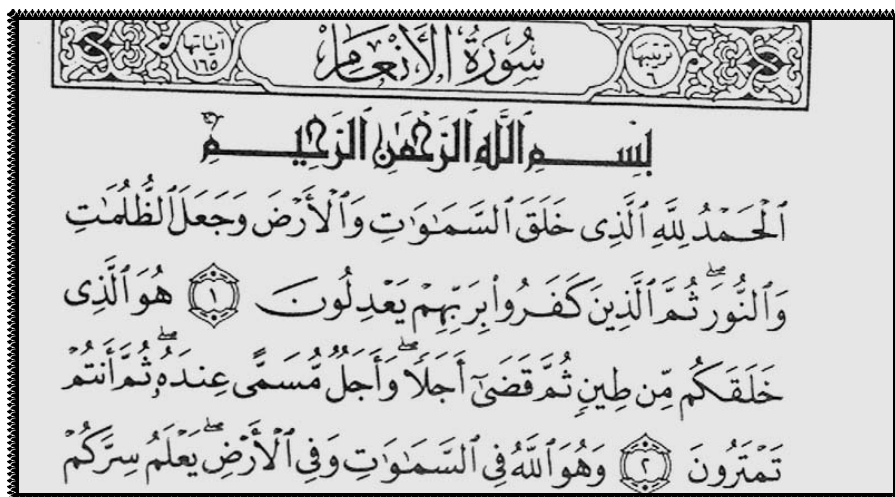 ترتيبها ٦ سُورَةُ الأَنْعَامِ آياتها ١٦٥
بِسْمِ ٱللَّهِ ٱلرَّحْمَٰنِ ٱلرَّحِيمِ
ٱلْحَمْدُ لِلَّهِ ٱلَّذِى خَلَقَ ٱلسَّمَٰوَٰتِ وَٱلْأَرْضَ وَجَعَلَ ٱلظُّلُمَٰتِ
وَٱلنُّورَ ۖ ثُمَّ ٱلَّذِينَ كَفَرُوا۟ بِرَبِّهِمْ يَعْدِلُونَ ١ هُوَ ٱلَّذِى
خَلَقَكُم مِّن طِينٍ ثُمَّ قَضَىٰٓ أَجَلًا ۖ وَأَجَلٌ مُّسَمًّى عِندَهُۥ ۖ ثُمَّ أَنتُمْ
تَمْتَرُونَ ٢ وَهُوَ ٱللَّهُ فِى ٱلسَّمَٰوَٰتِ وَفِى ٱلْأَرْضِ ۖ يَعْلَمُ سِرَّكُمْ